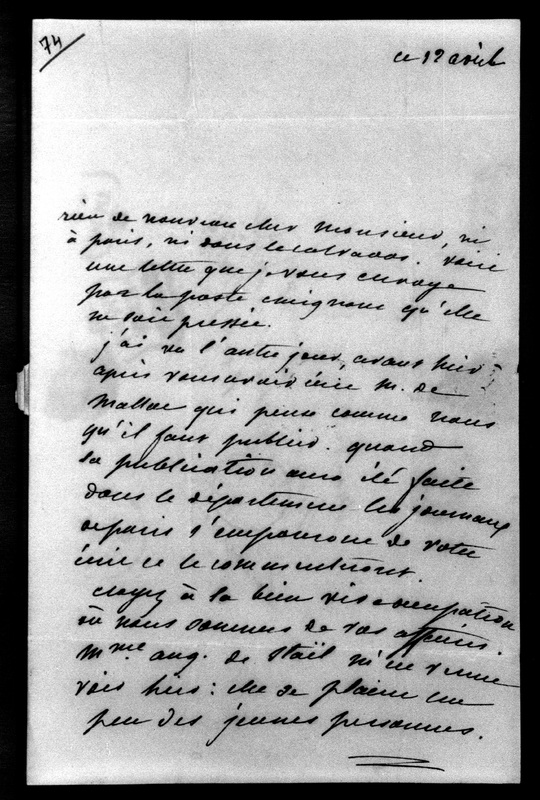 74
ce 12 avril
rien de nouveau cher Monsieur, ni
à paris, ni dans le calvados. voici
une lettre que je vous envoye
par la poste craignant qu'elle
ne soit pressée.
j'ai vu l'autre jour, avant hier
après vous avoir écrit M. de
Mallac qui pense comme nous
qu'il faut publier. quand
la publication aura été faite
dans le département les journaux
de paris s'empareront de votre
écrit et le commenteront.
croyez à la bien vive occupation
où nous sommes de vos affaires.
Mme aug. de Staël m'est venue
voir hier : elle se plaint un
peu des jeunes personnes.